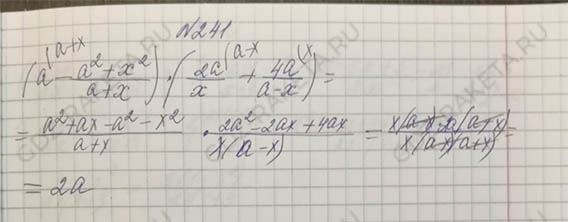 N241
(a^(a+x) - (a² + x²)/(a+x)) · (2a/x^(a-x) + 4a/(a-x)^(x) =
= (a² + ax - a² - x²)/(a+x) · (2a² - 2ax + 4ax)/(x(a-x)) = (x(a-x) · 2a(a+x))/(x(a-x)(a+x)) =
= 2a